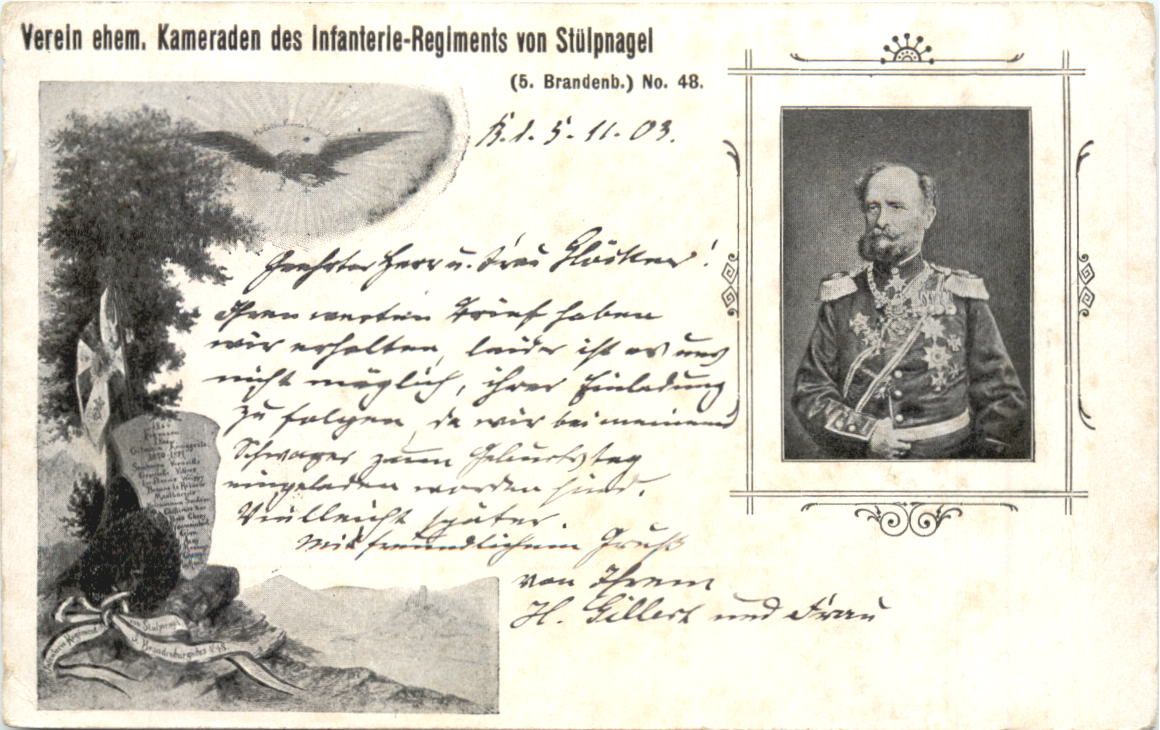 Verein ehem. Kameraden des Infanterie-Regiments von Stülpnagel
(5. Brandenb.) No. 48.
B. d. 5. 11. 03.
Geehrter Herr u. Frau Glöckner!
Ihren werten Brief haben
wir erhalten, leider ist es uns
nicht möglich, ihrer Einladung
zu folgen, da wir bei meinem
Schwager zum Geburtstag
eingeladen worden sind.
Vielleicht später.
Mit freundlichem Gruß
von Ihrem
H. Gillert und Frau
1864
1866
Gitschin Königgrätz
1870-1871
Infanterie Regiment von Stülpnagel
5. Brandenburgisches No. 48.